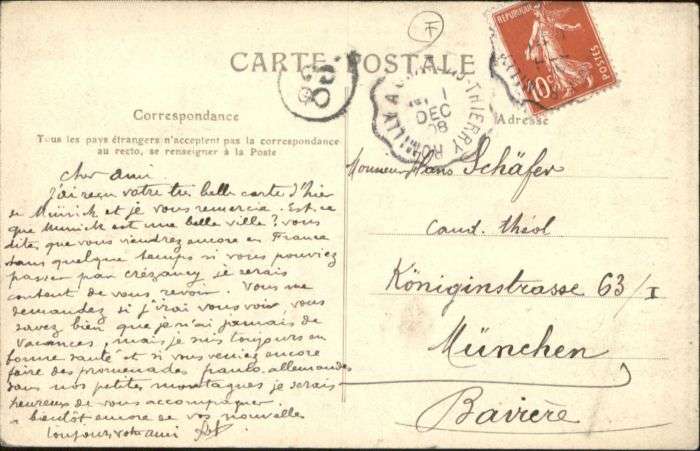 CARTE POSTALE
Correspondance
Tous les pays étrangers n'acceptent pas la correspondance
au recto, se renseigner à la Poste
Adresse
REPUBLIQUE
POSTES
10c
ROMILLY A CHATEAU-THIERRY
1
DEC
08
cher ami
J'ai reçu votre très belle carte d'hier
de Münick et je vous remercie. Est-ce
que Munick est une belle ville? vous
dites que vous viendrez encore en France
dans quelque temps si vous pouviez
passer par Crézancy je serais
content de vous revoir. Vous me
demandez si j'irai vous voir vous
savez bien que je n'ai jamais de
vacances, mais je suis toujours en
bonne santé et si vous veniez encore
faire des promenades franco-allemandes
dans nos petites montagnes je serais
heureux de vous accompagner.
à bientôt encore de vos nouvelles
toujours votre ami
Monsieur Hans Schäfer
cand. théol
Königinstrasse 63/I
München
Bavière